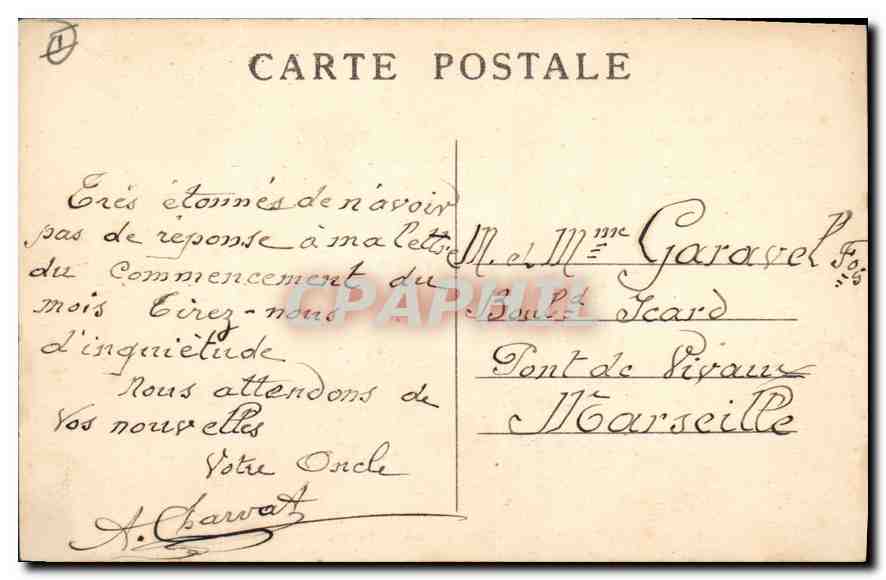 1
CARTE POSTALE
Très étonnés de n'avoir
pas de réponse à ma lettre
du commencement du
mois Tirez-nous
d'inquiètude
Nous attendons de
Vos nouvelles
Votre Oncle
A. Charvat
M. et Mme Garavel Fois
Boul.d Icard
Pont de Vivaux
Marseille
CPAPHIL